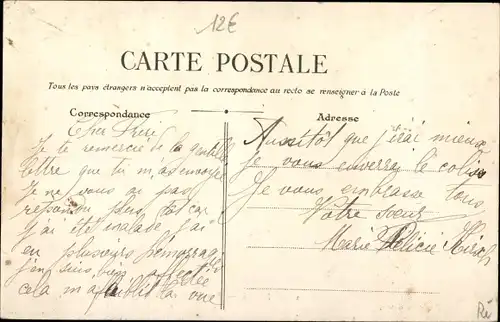 12€
CARTE POSTALE
Tous les pays étrangers n'acceptent pas la correspondance au recto se renseigner à la Poste
Correspondance
Adresse
Cher Frère
Je te remercie de la gentille
lettre que tu m'as envoyé
Je ne vous ai pas
répondu plus tôt car
j'ai été malade j'ai
eu plusieurs
j'en suis bien affectée
cela m'a j'ai
Aussitôt que j'irai mieux
je vous enverrai le colis
Je vous embrasse tous
Votre sœur
Marie Félicie